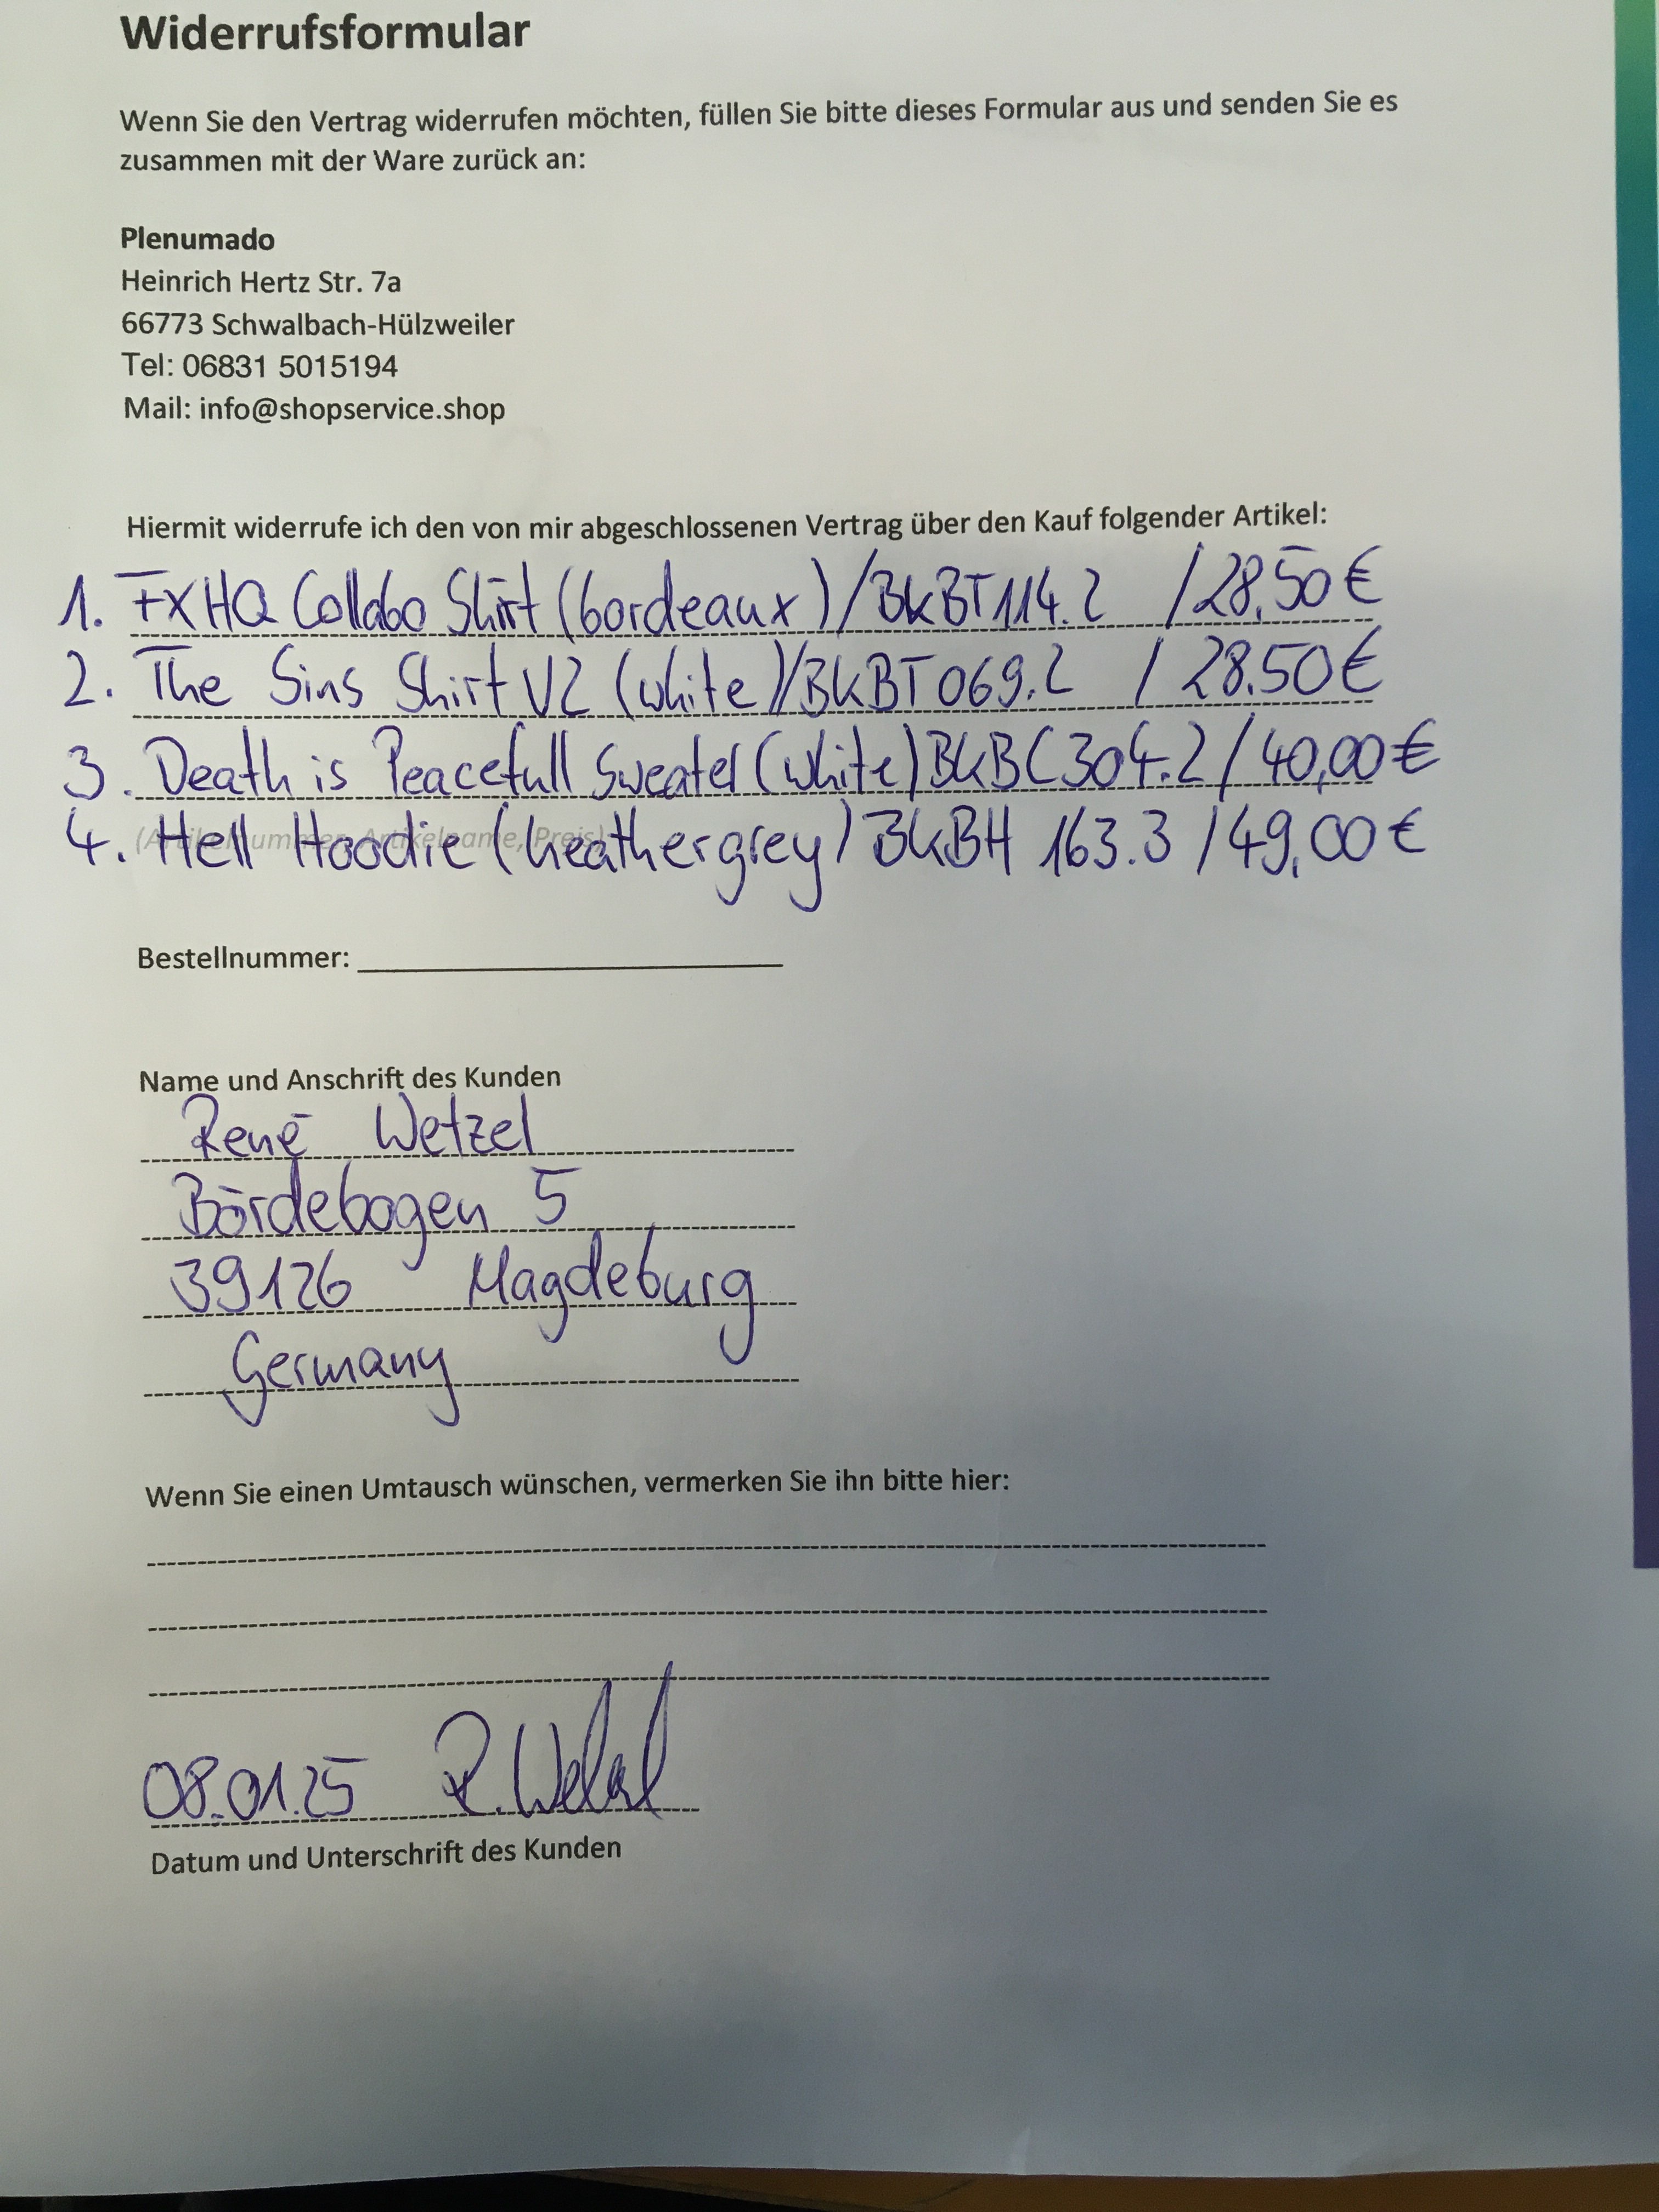 Widerrufsformular
Wenn Sie den Vertrag widerrufen möchten, füllen Sie bitte dieses Formular aus und senden Sie es
zusammen mit der Ware zurück an:
Plenumado
Heinrich Hertz Str. 7a
66773 Schwalbach-Hülzweiler
Tel: 06831 5015194
Mail: info@shopservice.shop
Hiermit widerrufe ich den von mir abgeschlossenen Vertrag über den Kauf folgender Artikel:
1. FXHQ Collabo Shirt (bordeaux) / BKBT114.2 / 28,50 €
2. The Sins Shirt V2 (white) / BKBT069.2 / 28.50 €
3. Death is Peacefull Sweater (white) BKBC304.2 / 40,00 €
4. Hell Hoodie (heathergrey) BKBH 163.3 / 49,00 €
(Artikelnummer, Artikelname, Preis)
Bestellnummer:
Name und Anschrift des Kunden
René Wetzel
Bördebogen 5
39126 Magdeburg
Germany
Wenn Sie einen Umtausch wünschen, vermerken Sie ihn bitte hier:
08.01.25 R. Wetzel
Datum und Unterschrift des Kunden